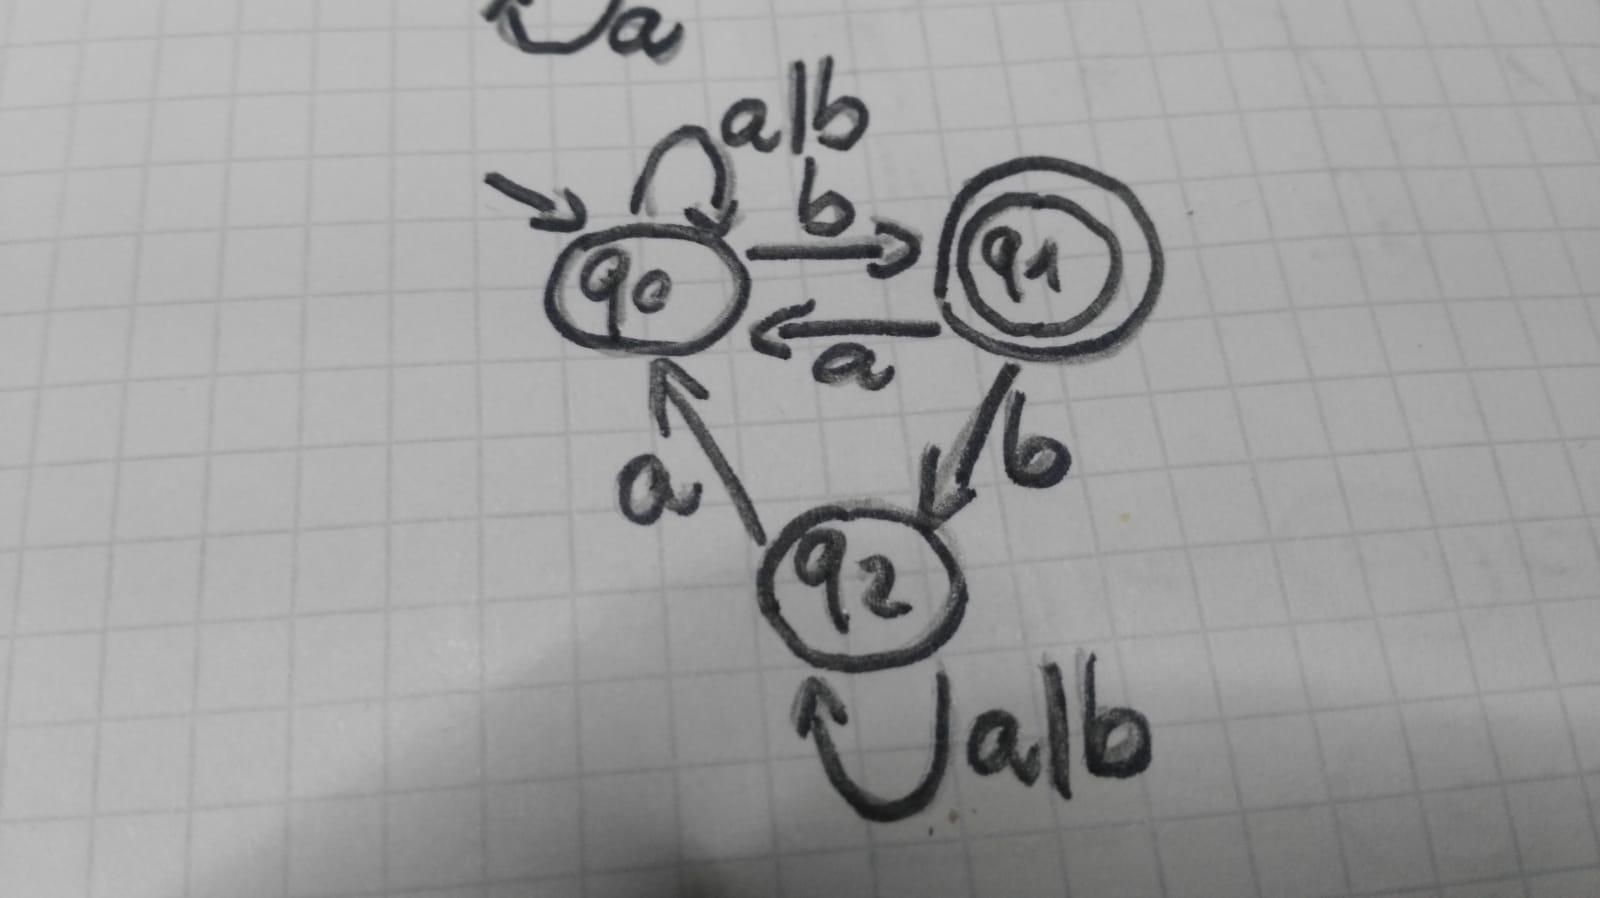 a
a|b
b
q0
q1
a
b
a
q2
a|b